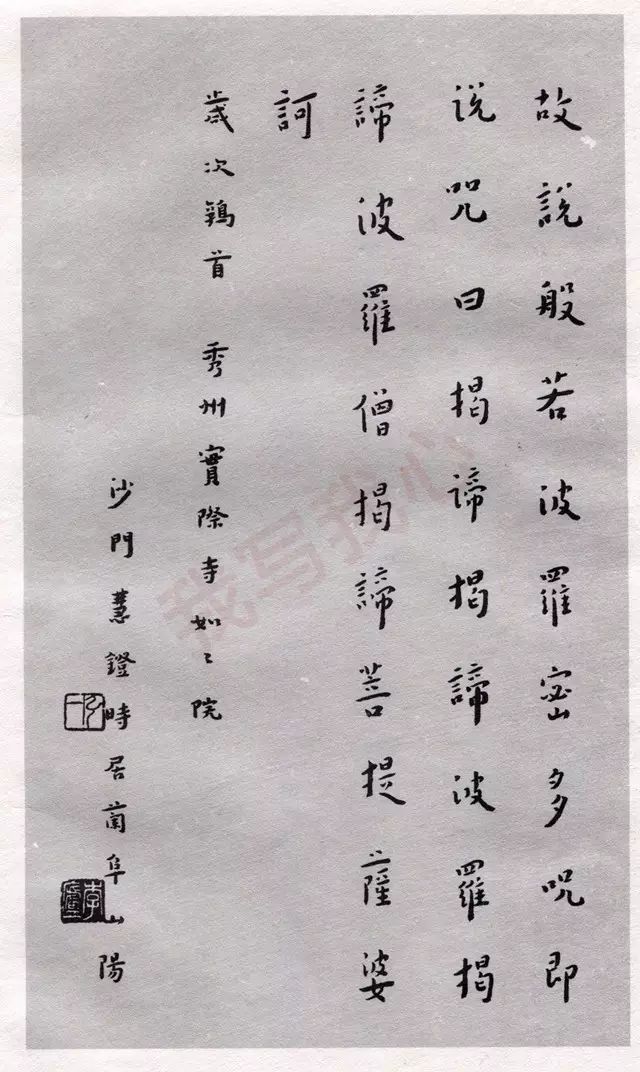 故說般若波羅密多咒即
说咒曰揭諦揭諦波羅揭
諦波羅僧揭諦菩提薩婆
訶
歲次鶉首 秀州實際寺如〻院
沙門慧鐙時居蘭阜山陽
我写我心